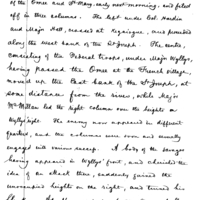 of the Omee and St. Mary, early next morning, and filed
off in three columns. The left under Col. Hardin
and Major Hall, crossed at
along the west bank of the St. Joseph. The center,
consisting of the Federal troops, under Major Wyllys,
having passed the Omee at the French village,
moved up the East bank of the St. Joseph, at
some distance from the river, while Major
McMillan led the right column over the heights on
Wyllys right. The enemy now appeared in different
quarters, and the columns were soon and
engaged with various success. A body of the savages
having appeared in Wyllys' front, and
idea of an attack there, suddenly gained the
heights on the right, and turned his